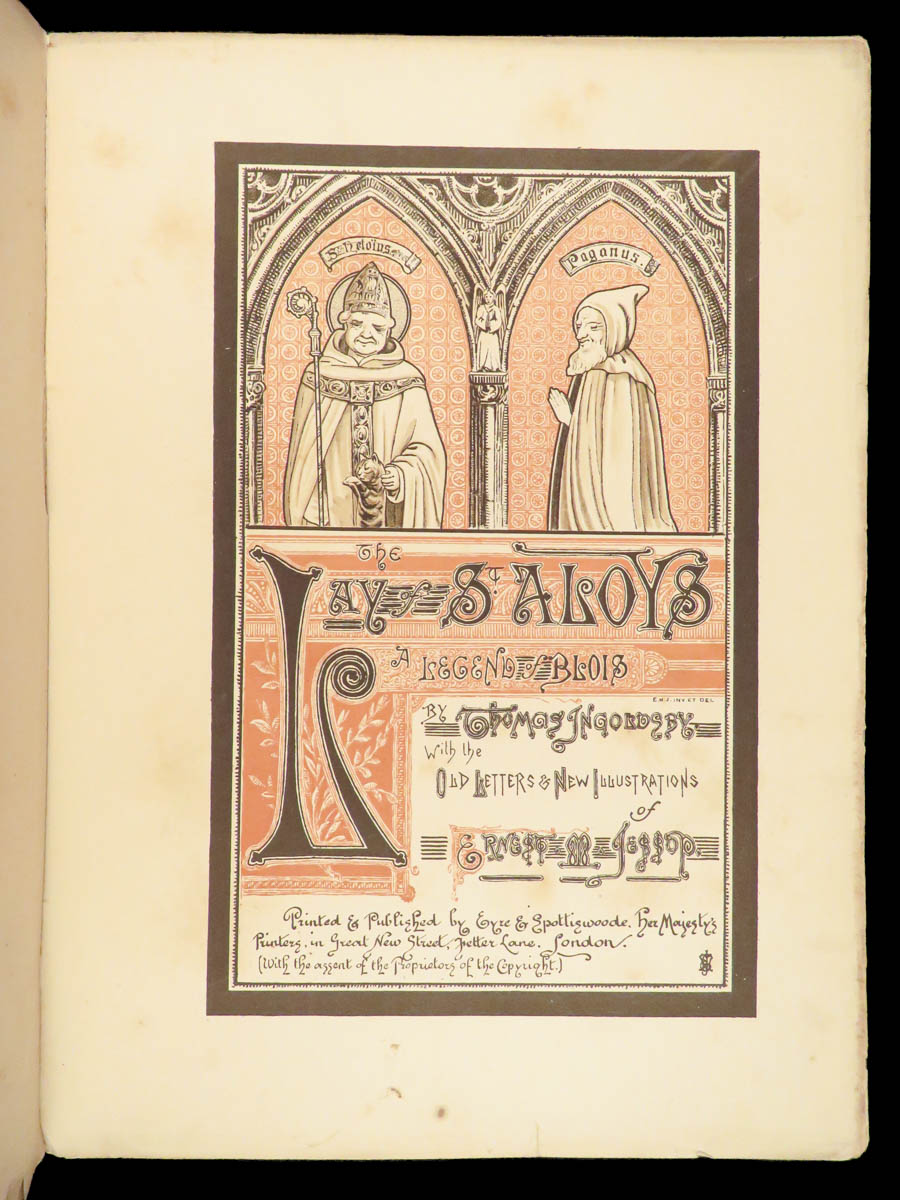 S. Heloïus.
Paganus.
THE
LAY of ST. ALOYS
A LEGEND OF BLOIS
E.M.J. INV. ET DEL.
BY THOMAS INGOLDSBY.
With the
OLD LETTERS & NEW ILLUSTRATIONS
of
ERNEST M JESSOP.
Printed & Published by Eyre & Spottiswoode, Her Majesty's
Printers, in Great New Street, Fetter Lane. London.
(With the assent of the Proprietors of the Copyright.)